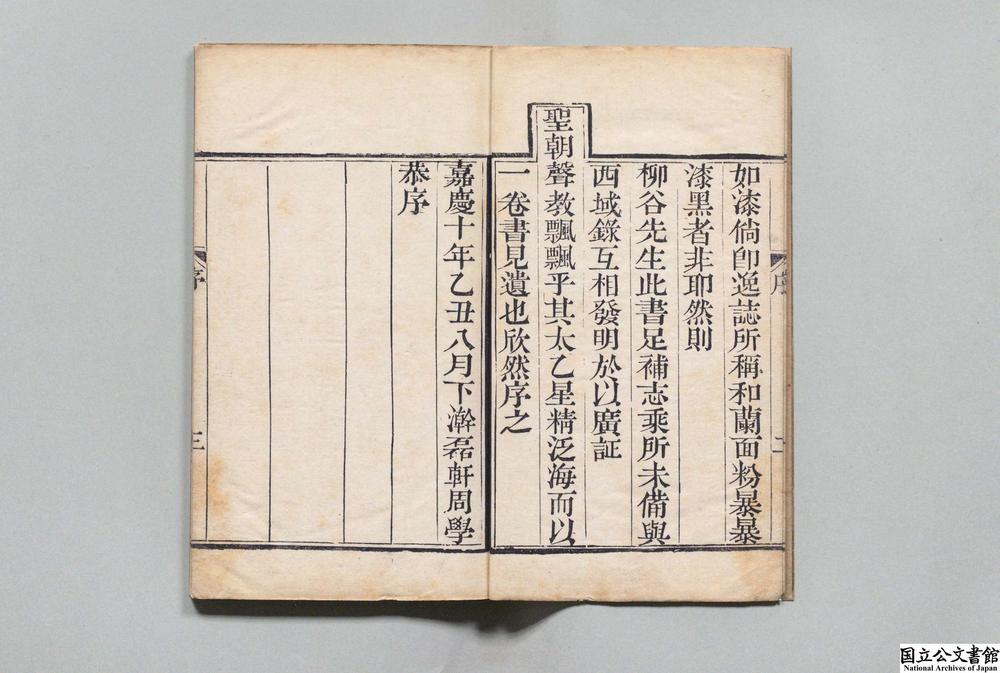 如漆倘卽逸誌所稱和蘭面粉暴暴
漆黑者非耶然則
柳谷先生此書足補志乘所未備與
西域錄互相發明於以廣証
聖朝聲教飄飄乎其太乙星精泛海而以
一卷書見遺也欣然序之
嘉慶十年乙丑八月下澣磊軒周學
恭序
序
二
序
三
国立公文書館
National Archives of Japan